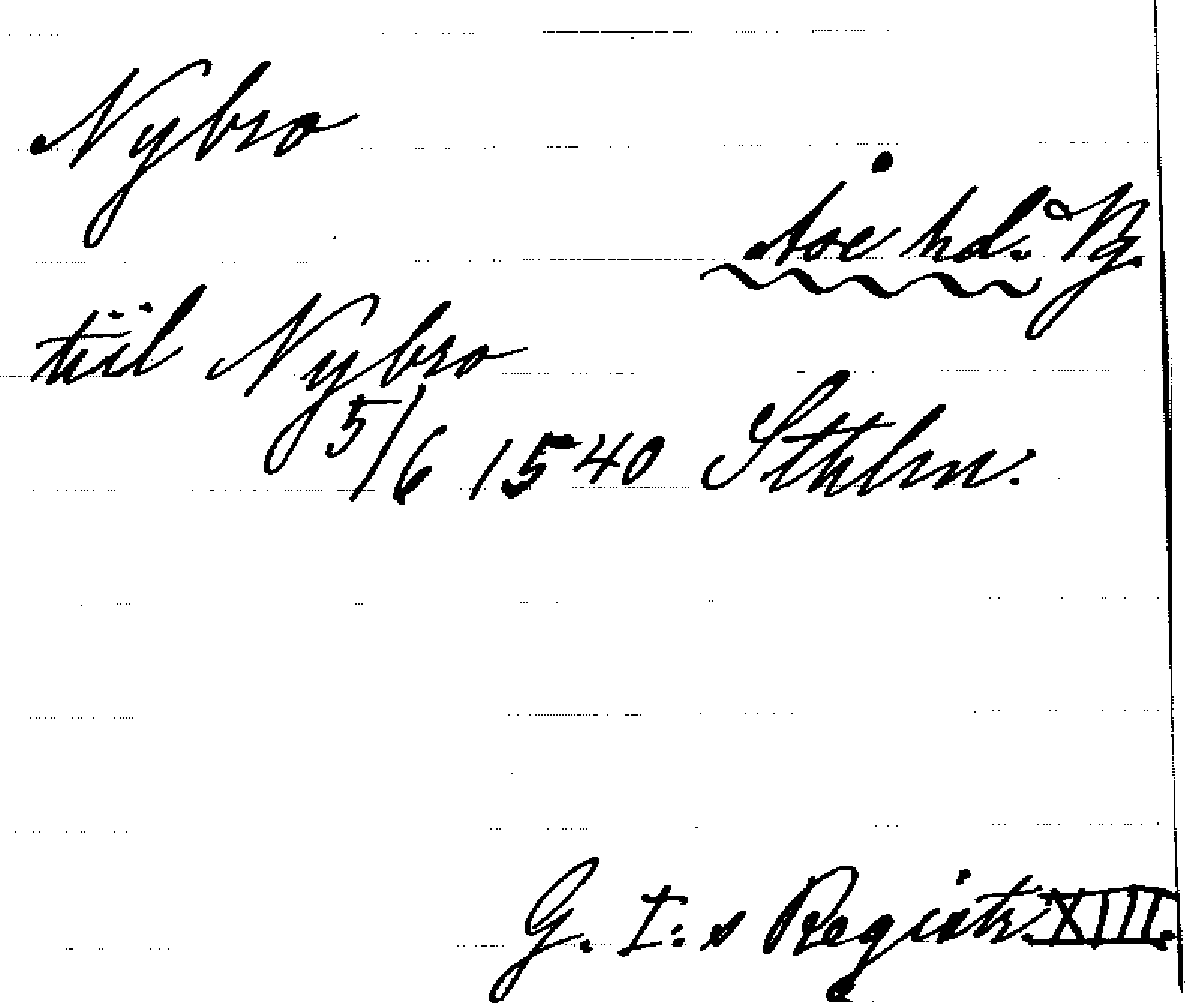 Nybro
Åse hd. Vg.
tiil Nybro
5/6 1540 Sthlm.
G. I:s Registr. XIII.